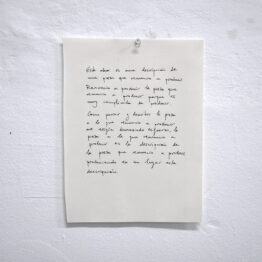 Esta obra es una descripción de
una pieza que renuncio a producir.
Renuncio a producir la pieza que
renuncio a producir porque es
muy complicada de producir.
Como pensar y describir la pieza
a la que renuncio a producir
me exige demasiado esfuerzo, la
pieza a la que renuncio a
producir es la descripción de
la pieza que renuncio a producir
produciendo en su lugar esta
descripción.